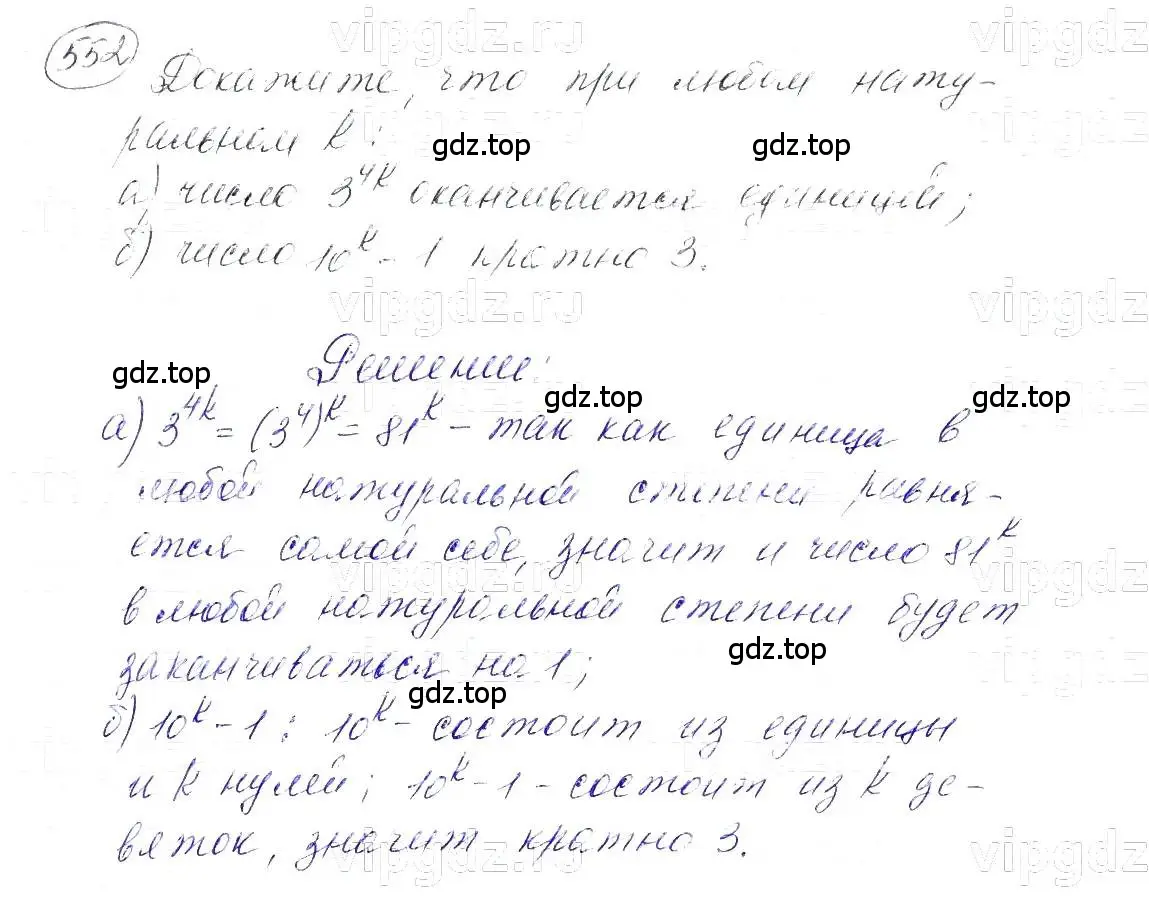 vipgdz.ru vipgdz
552 Докажите, что при любом нату-
ральном k:
gdz.top gdz.top
а) число 3^4k оканчивается единицей;
б) число 10^k - 1 кратно 3.
vipgdz.ru vipgdz
Решение:
gdz.top gdz.top gdz.top
а) 3^4k = (3^4)^k = 81^k - так как единица в
любой натуральной степени равня-
ется самой себе, значит и число 81^k
vipgdz.ru vipgdz
в любой натуральной степени будет
gdz.top
заканчиваться на 1;
gdz.top
б) 10^k - 1 : 10^k - состоит из единицы
vipgdz.ru vipgdz
и k нулей; 10^k - 1 - состоит из k де-
вяток, значит кратно 3.
vipgdz.ru vipgdz